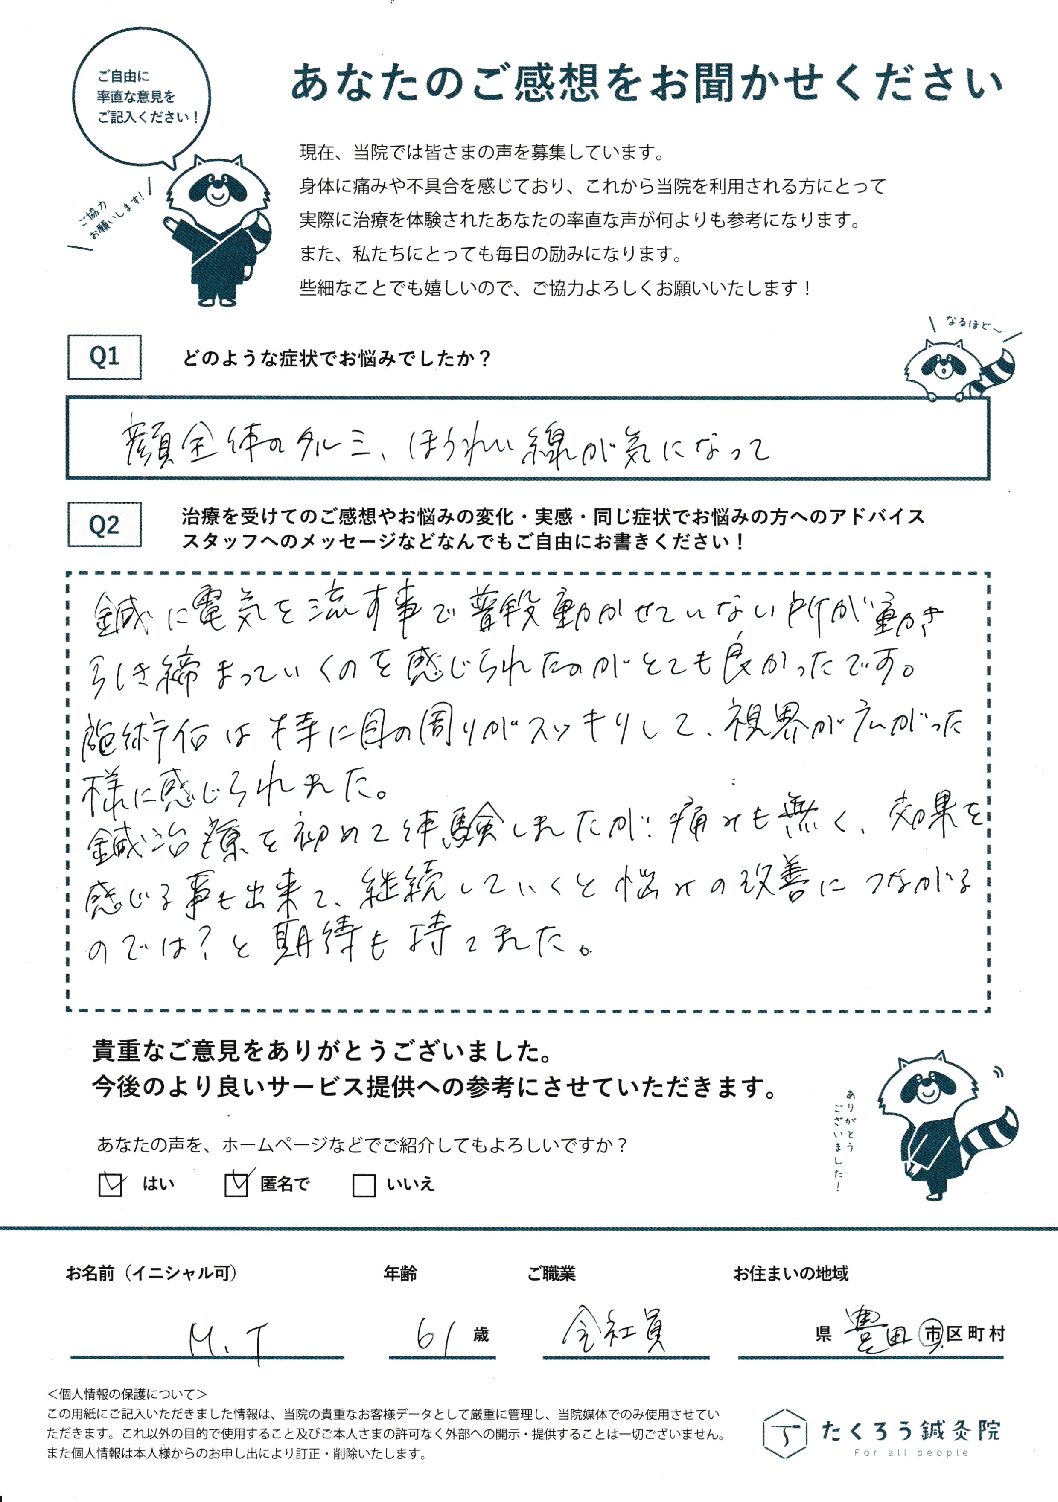 ご自由に
率直な意見を
ご記入ください！
ご協力
お願いします！
あなたのご感想をお聞かせください
現在、当院では皆さまの声を募集しています。
身体に痛みや不具合を感じており、これから当院を利用される方にとって
実際に治療を体験されたあなたの率直な声が何よりも参考になります。
また、私たちにとっても毎日の励みになります。
些細なことでも嬉しいので、ご協力よろしくお願いいたします！
なるほど〜
Q1 どのような症状でお悩みでしたか？
顔全体のタルミ、ほうれい線が気になって
Q2 治療を受けてのご感想やお悩みの変化・実感・同じ症状でお悩みの方へのアドバイス
スタッフへのメッセージなどなんでもご自由にお書きください！
鍼に電気を流す事で普段動かせていない所が動き
引き締まっていくのを感じられたのがとても良かったです。
施術后は特に目の周りがスッキリして、視界が広がった
様に感じられました。
鍼治療を初めて体験しましたが、痛みも無く、効果を
感じる事も出来て、継続していくと悩みの改善につながる
のでは？と期待も持てました。
貴重なご意見をありがとうございました。
今後のより良いサービス提供への参考にさせていただきます。
ありがとう
ございました！
あなたの声を、ホームページなどでご紹介してもよろしいですか？
はい 匿名で いいえ
お名前（イニシャル可） 年齢 ご職業 お住まいの地域
M.T 61歳 会社員 県 豊田市区町村
＜個人情報の保護について＞
この用紙にご記入いただきました情報は、当院の貴重なお客様データとして厳重に管理し、当院媒体でのみ使用させてい
ただきます。これ以外の目的で使用すること及びご本人さまの許可なく外部への開示・提供することは一切ございません。
また個人情報は本人様からのお申し出により訂正・削除いたします。
たくろう鍼灸院
For all people